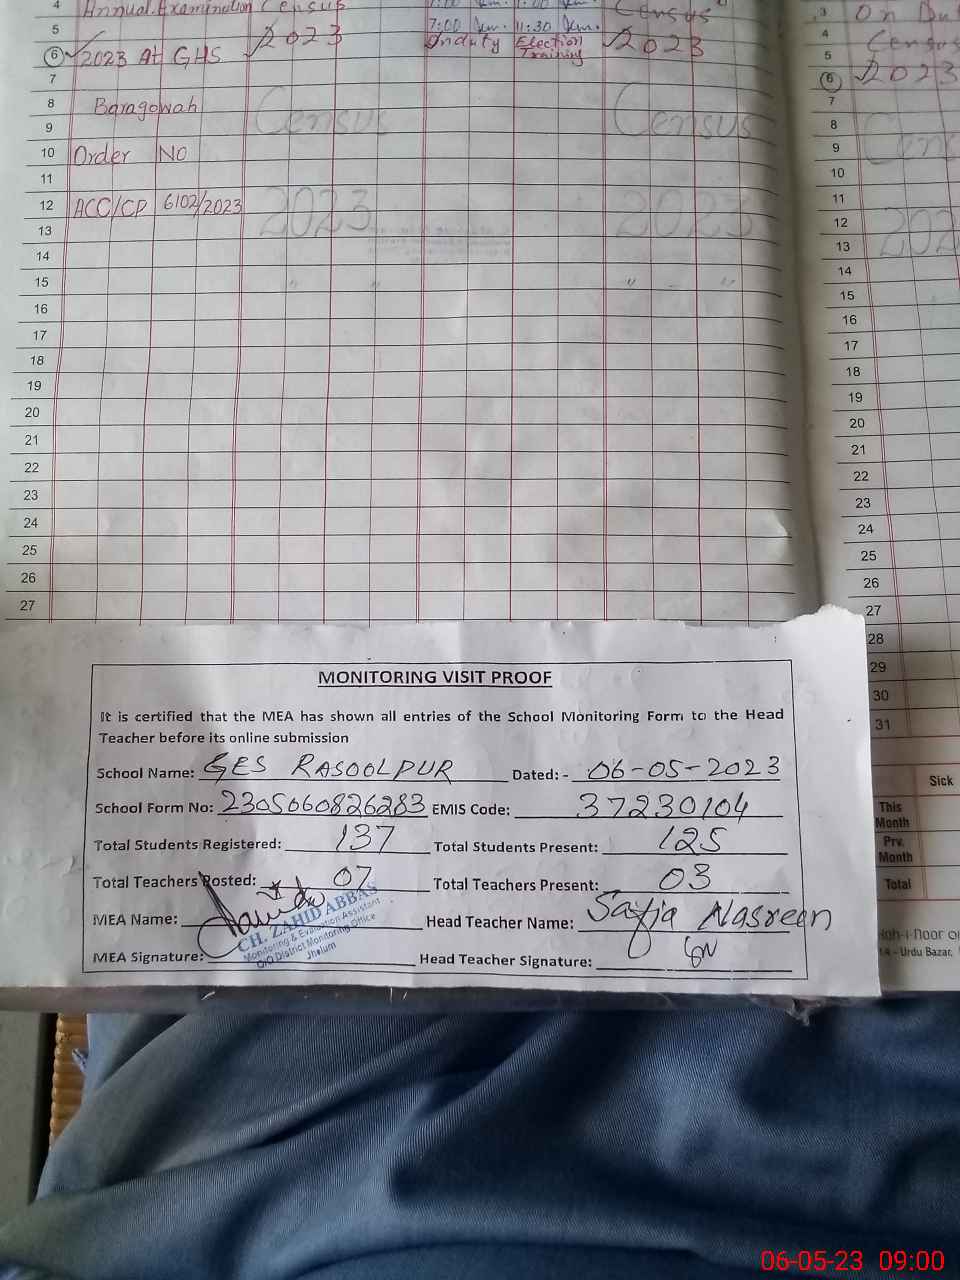 4 Annual Examination Census
7:00 Am. 11:30 Am. Census
5
6 2023 At GHS 2023 Onduty Election Training 2023
7
8 Baragowah
9
10 Order No
11
12 ACC/CD 6102/2023
13
14
15
16
17
18
19
20
21
22
23
24
25
26
27
3 On
4 Census
5
6 2023
7
8
9
10
11
12
13
14
15
16
17
18
19
20
21
22
23
24
25
26
27
28
29
30
31
Sick
This Month
Prv. Month
Total
14 - Urdu Bazar,
MONITORING VISIT PROOF
It is certified that the MEA has shown all entries of the School Monitoring Form to the Head
Teacher before its online submission
School Name: GES RASOOLPUR Dated: - 06-05-2023
School Form No: 2305060826283 EMIS Code: 37230104
Total Students Registered: 137 Total Students Present: 125
Total Teachers Posted: 07 Total Teachers Present: 03
MEA Name: Head Teacher Name: Safia Nasreen
CH. ZAHID ABBAS
Monitoring & Evaluation Assistant
O/O District Monitoring Office
Jhelum
MEA Signature: Head Teacher Signature:
06-05-23 09:00